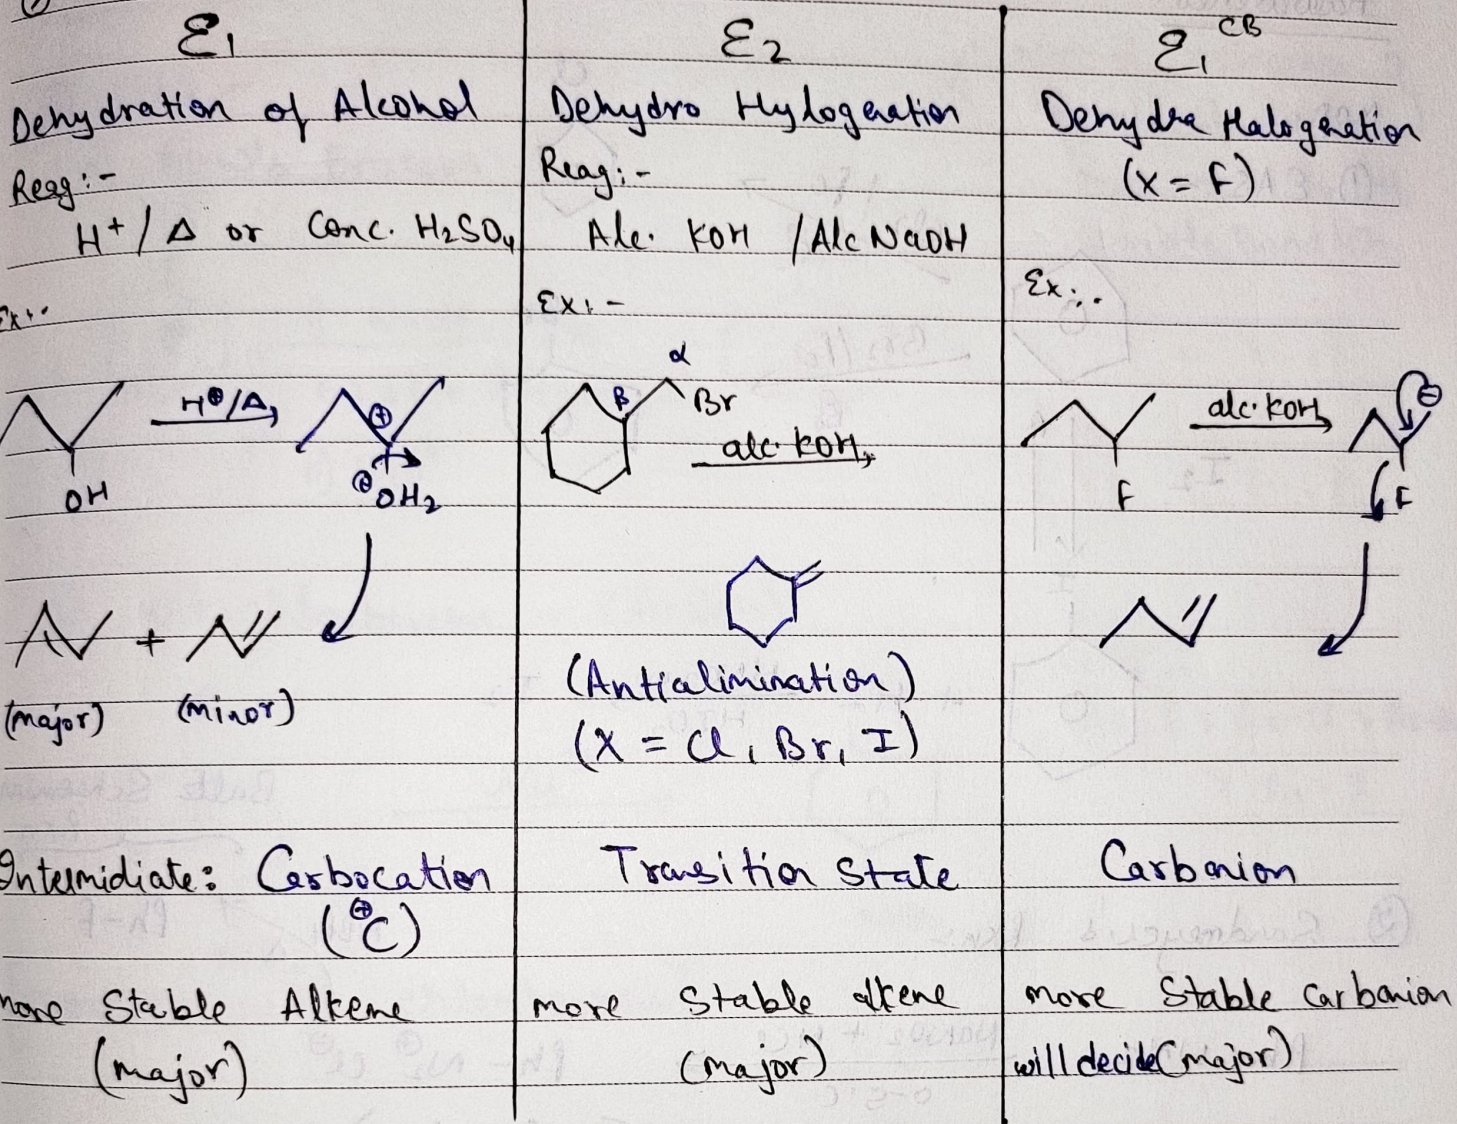 E1
Dehydration of Alcohol
Reag:-
H+/Δ or Conc. H2SO4
Ex:-
H⊕/Δ
⊕
OH
⊕OH2
+
(major)
(minor)
Intermidiate: Carbocation
(⊕C)
more Stable Alkene
(major)
E2
Dehydro Hylogenation
Reag:-
Alc. KOH /Alc NaOH
Ex:-
α
β
Br
alc. KOH
(Antialimination)
(X = Cl, Br, I)
Transition State
more Stable alkene
(major)
E1 CB
Dehydra Halogenation
(X = F)
Ex:-
alc. KOH
⊖
F
F
Carbonion
more Stable Carbonion
will decide (major)